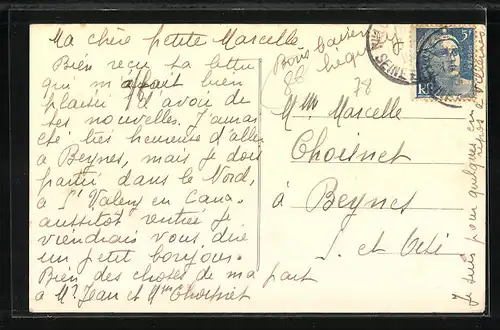 Ma chère petite Marcelle
Bien reçu ta lettre
qui m'a fait bien
plaisir d'avoir de
tes nouvelles. J'aurais
été très heureuse d'aller
à Beynes, mais je dois
partir dans le Nord,
à St Valery en Caux
aussitôt rentrée je
viendrais vous dire
un petit bonjour.
Bien des choses de ma part
à Mr Jean et Mme Choisnet
Bons baisers
78
Mme Marcelle
Choisnet
à
Beynes
S. et Oise
5F
RF
Je suis pour quelques
repos à